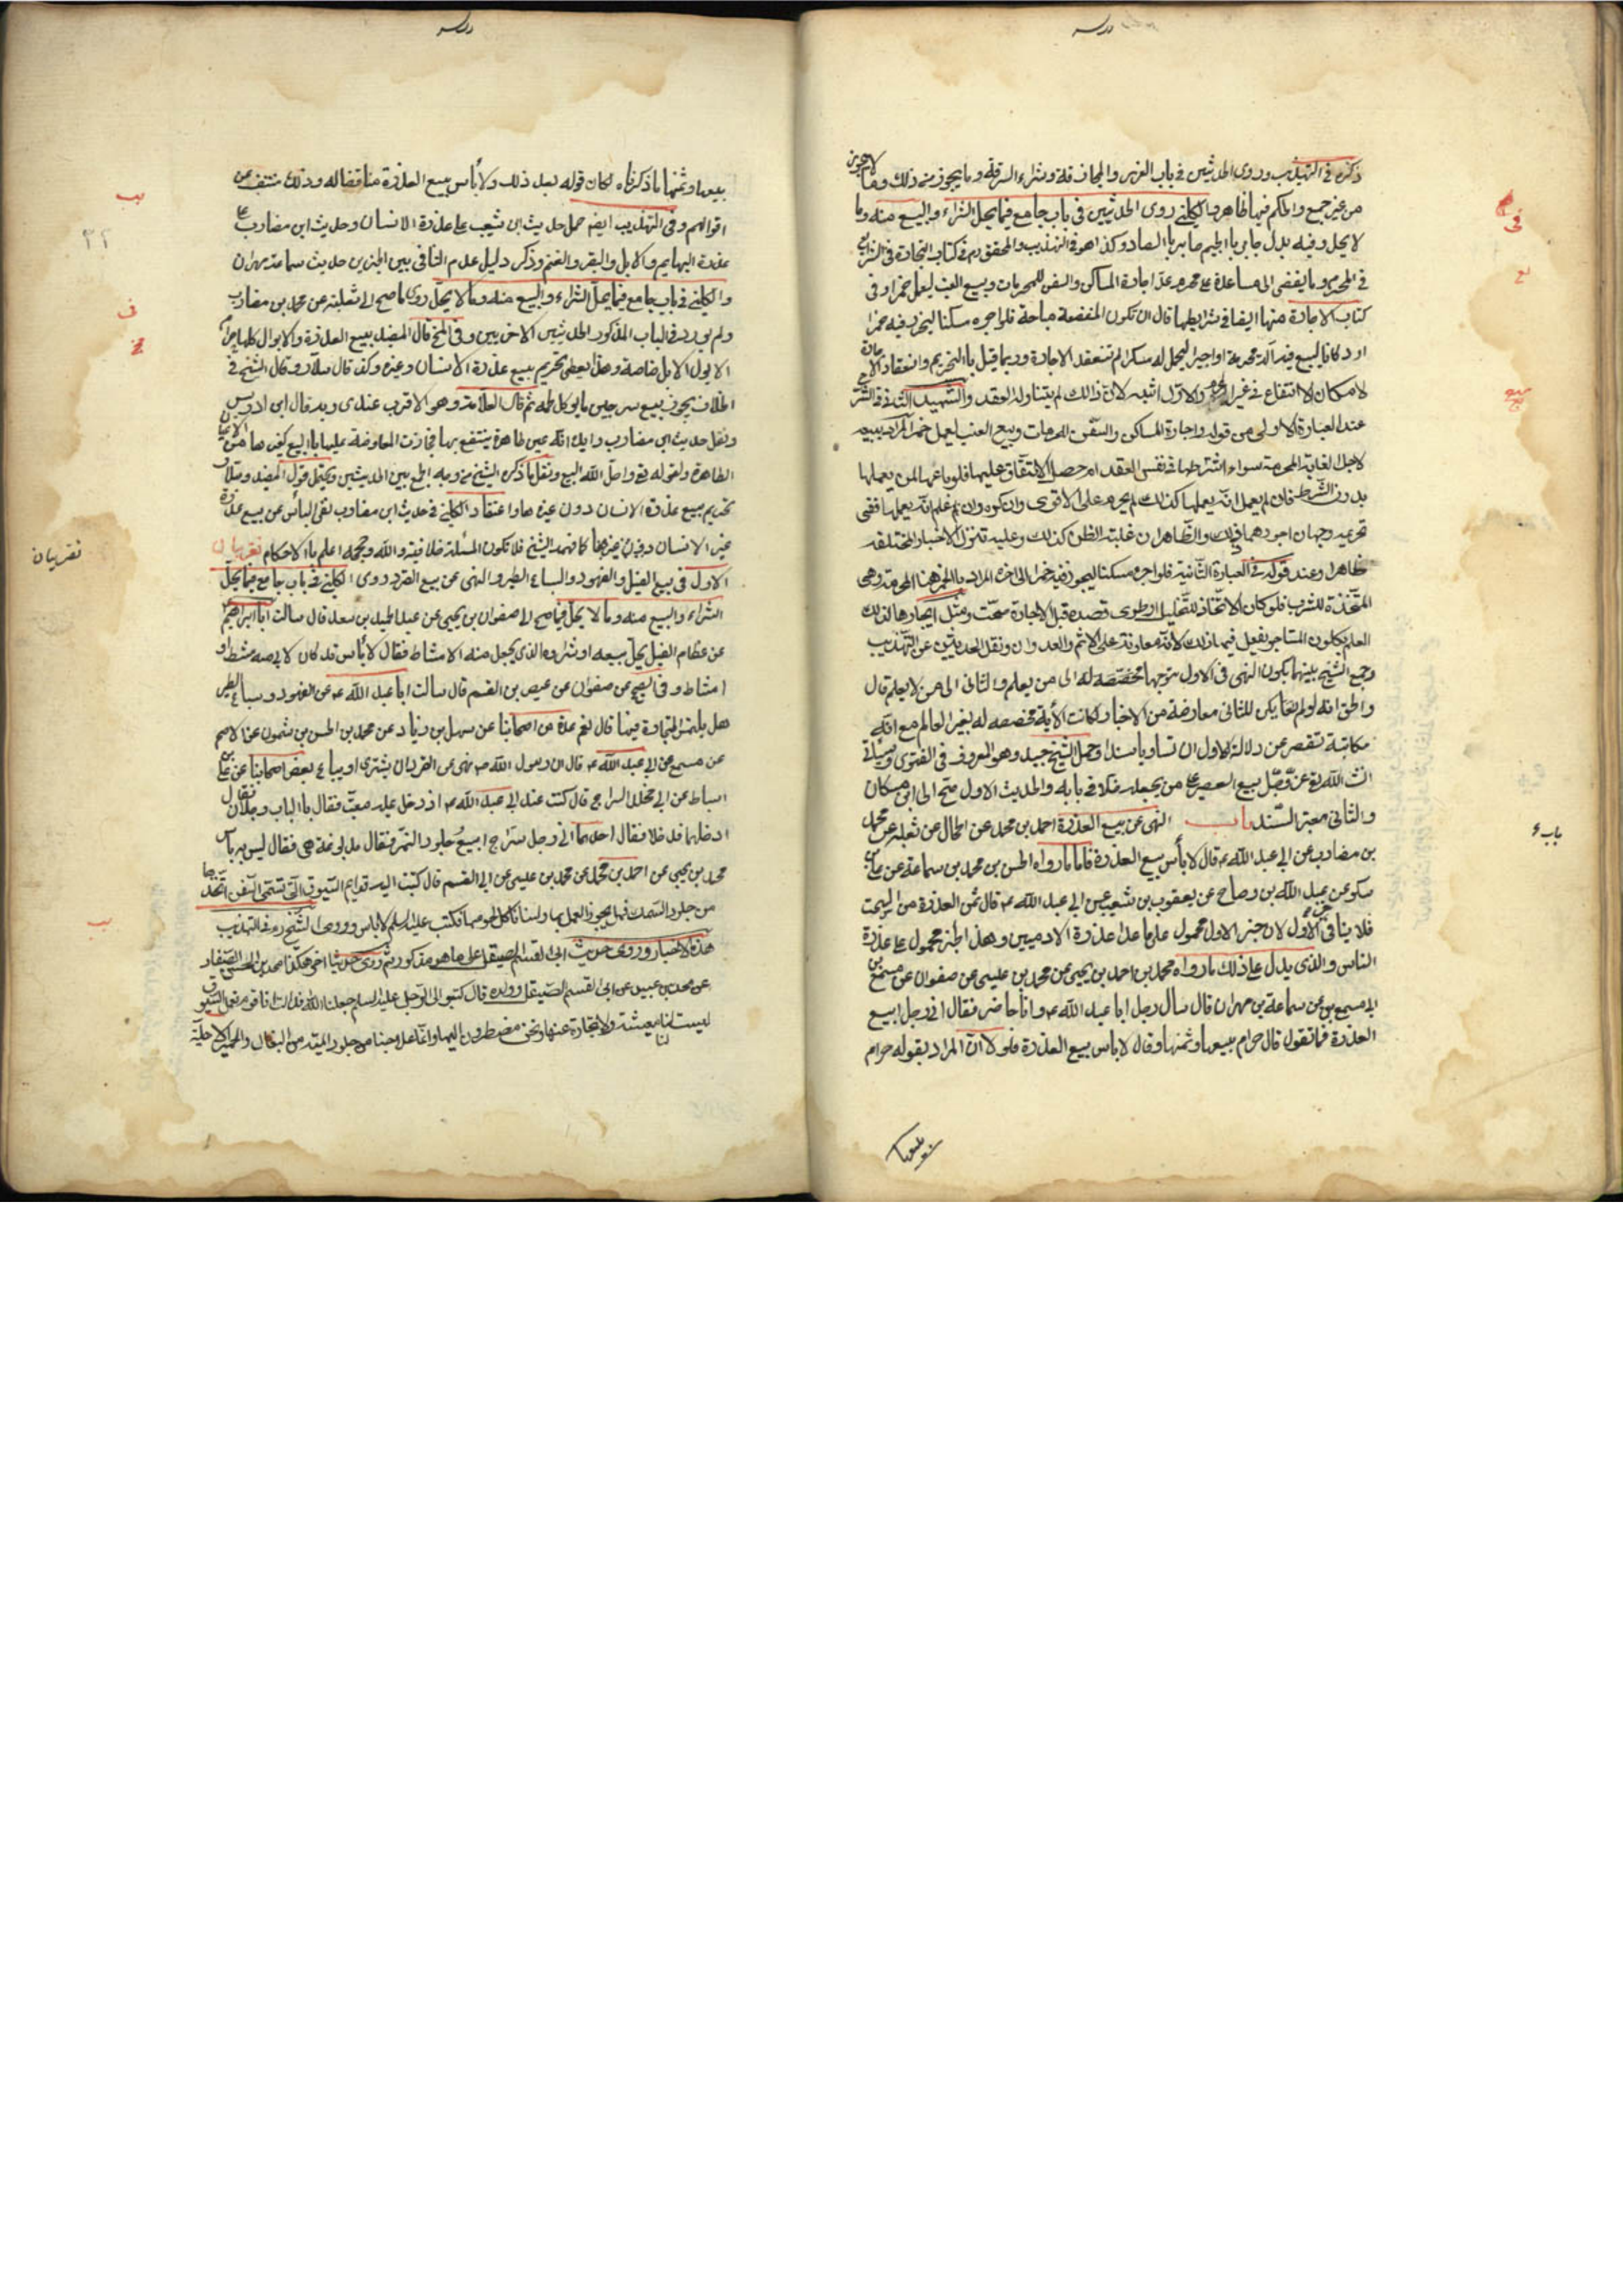 ذكره في التهذيب وروى الحديثين في باب الغرر والمجازفة وشراء السرقة وما يجوز من ذلك وما لا يجوز
من غير جمع والحكم فيها ظاهر والكليني روى الحديثين في باب جامع فيما يحل الشراء والبيع منه وما
لا يحل وفيه بدل جابر بالجيم صابر بالصاد وكذا هو في التهذيب والمحقق ره في كتاب التجارة في الشرايع
في المحرم وما يفضى الى مساعدة على محرم عدّ اجارة المساكن والسفن للمحرمات وبيع العنب ليعمل خمرا وفي
كتاب الاجارة منها ايضا في شرايطها قال ان تكون المنفعة مباحة فلو اجره مسكنا ليحرز فيه خمرا
او دكانا ليبيع فيه آلة محرمة او اجيرا ليحمل له مسكرا لم تنعقد الاجارة وربما قيل بالتحريم وانعقاد الاجارة
لامكان الانتفاع في غير المحرم والاول اشبه لان ذلك لم يتناوله العقد والشهيد الثاني في الشرح
عند العبارة الاولى من قوله واجارة المساكن والسفن للمحرمات وبيع العنب ليعمل خمرا المراد بيعه
لاجل الغاية المحرمة سواء اشترطها في نفس العقد ام حصل الاتفاق عليها فلو باعها لمن يعملها
بدون الشرط فان لم يعلم انه يعملها كذلك لم يحرم على الاقوى وان كره وان علم انه يعملها ففي
تحريمه وجهان اجودهما ذلك والظاهر ان غلبة الظن كذلك وعليه تنزل الاخبار المختلفة
ظاهرا وعند قوله في العبارة الثانية فلو اجره مسكنا ليحوز فيه خمرا الى اخره المراد بالخمر هنا المحرمة وهي
المتخذة للشرب فلو كان الاتخاذ للتخليل او طوى قصده قبل الاجارة صحت ومثل ايجارها لذلك
العلم بكون المستاجر يفعل فيها ذلك لانه معاونة على الاثم والعدوان ونقل الحديثين عن التهذيب
وجمع الشيخ بينهما بكون النهي في الاول متوجها مخصصه له الى من يعلم والثاني الى من لا يعلم قال
والحق انه لو لم يكن للثاني معارضة من الاخبار لكانت الآية مخصصه له بغير العالم مع انه
مكاتبة تقصر عن دلالة الاول ان تساويا سندا وحمل الشيخ جيد وهو المعروف في الفتوى وسياتي
انشاء الله تع عن قصّل بيع العصير على من يجعله خمرا في بابه والحديث الاول صح الى ابن مسكان
والثاني معتبر السند باب النهي عن بيع العذرة احمد بن محمد عن الحجال عن ثعلبه عن محمد
بن مضارب عن ابي عبد الله ع قال لا بأس ببيع العذرة فاما ما رواه الحسن بن محمد بن سماعة عن علي بن
سكن عن عبد الله بن وضاح عن يعقوب بن شعيب عن ابي عبد الله ع قال ثمن العذرة من السحت
فلا ينافي الاول لان خبر الاول محمول على ما عدا عذرة الادميين وهذا الخبر محمول على عذرة
الناس والذي يدل على ذلك ما رواه محمد بن احمد بن يحيى عن محمد بن عيسى عن صفوان عن مسمع بن
ابي مسمع عن سماعة بن مهران قال سال رجل ابا عبد الله ع وانا حاضر فقال اني رجل ابيع
العذرة فما تقول قال حرام بيعها وثمنها وقال لا باس ببيع العذرة فلولا ان المراد بقوله حرام
باب
بيعها وثمنها ما ذكرناه لكان قوله بعد ذلك ولا بأس ببيع العذرة مناقضا له وذلك منتف عن
اقوالهم وفي التهذيب ايضا حمل حديث ابن شعيب على عذرة الانسان وحديث ابن مضارب على
عذرة البهايم والابل والبقر والغنم وذكر دليل عدم التنافي بين الخبرين حديث سماعة بن مهران
والكليني في باب جامع فيما يحل الشراء والبيع منه وما لا يحل روى ما صح الى ثعلبة عن محمد بن مضارب
ولم يورد في الباب المذكور الحديثين الاخريين وفي المخ قال المفيد بيع العذرة والابوال كلها حرام
الا بول الابل خاصة وهذا يعطى تحريم بيع عذرة الانسان وغيره وكذا قال سلار وقال الشيخ في
الخلاف يجوز بيع سرجين ما يوكل لحمه ثم قال العلامة وهو الاقرب عندى وبه قال ابن ادريس
ونقل حديث ابن مضارب وايده انه عين طاهرة ينتفع بها فجازت المعاوضة عليها بالبيع كغيرها من الاعيان
الطاهرة ولقوله تع واحل الله البيع ونقل ما ذكره الشيخ من وجه الجمع بين الحديثين ويحتمل قول المفيد وسلار
تحريم بيع عذرة الانسان دون غيرها واعتقاد الكليني في حديث ابن مضارب نفى البأس عن بيع عذرة
غير الانسان كما فهمه الشيخ فلا تكون المسئلة خلافية والله وحججه اعلم بالاحكام تفريعان
الاول في بيع الفيل والفهود والسباع الطير والنهى عن بيع القرد روى الكليني في باب جامع فيما يحل
الشراء والبيع منه وما لا يحل فيما صح الى صفوان بن يحيى عن عبد الحميد بن سعد قال سالت ابا ابراهيم ع
عن عظام الفيل يحل بيعه او شراوه الذي يجعل منه الامشاط فقال لا بأس قد كان لابي منه مشط او
امشاط وفي الصح عن صفوان عن عيص بن القسم قال سالت ابا عبد الله ع عن الفهود وسباع الطير
هل يلتمس التجارة فيها قال نعم عدة من اصحابنا عن سهل بن زياد عن محمد بن الحسن بن شمون عن الاصم
عن مسمع عن ابي عبد الله ع قال ان رسول الله ص نهى عن القرد ان يشترى او يباع بعض اصحابنا عن علي بن
اسباط عن ابي مخلد السراج قال كنت عند ابي عبد الله ع اذ دخل عليه معتب فقال بالباب رجلان فقال
ادخلهما فدخلا فقال احدهما اني رجل سراج ابيع جلود النمر فقال مدبوغة هي فقال ليس به بأس
محمد بن يحيى عن احمد بن محمد عن محمد بن عيسى عن ابي القسم قال كتبت اليه قوايم السيوف التي تسمى السفن اتخذها
من جلود السمك فهل يجوز العمل بها ولسنا ناكل لحومها فكتب عليه السلم لا باس وروى الشيخ ره في التهذيب
هذه الاخبار وروى حديث ابي القسم الصيقل على ما هو مذكور ثم روى حديثا اخر هكذا محمد بن الحسن الصفار
عن محمد بن عيسى عن ابي القسم الصيقل وولده قال كتبوا الى الرجل عليه السلم جعلنا الله فداك انا قوم نعمل السيوف
ليست لنا معيشة ولا تجارة غيرها ونحن مضطرون اليها وانما علاجنا من جلود الميتة من البغال والحمير الاهلية
تفريعان